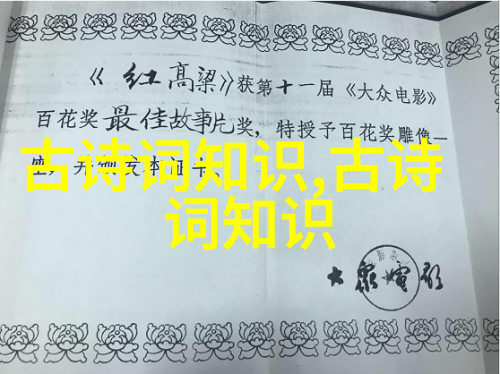 《红高粱》获第十一届《大众电影》
百花奖最佳故事片奖,特授予百花奖雕像一
座,并颁发本证书。
古诗词知识,古诗
词知识
大众电影